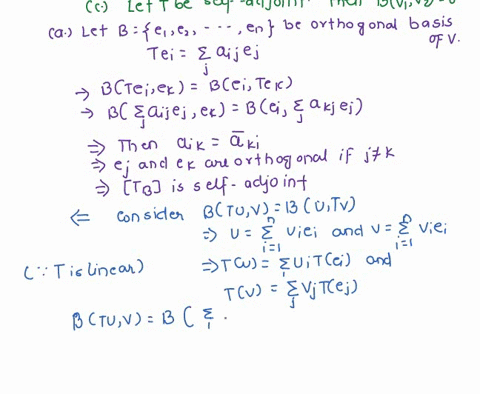 (c.) Let T be self-adjoint. Then B(v
(a.) Let B = {e1, e2, ----, en} be orthogonal basis of V.
Tei = Σj aijej
→ B(Tei, ek) = B(ei, Tek)
→ B(Σj aijej, ek) = B(ei, Σj akjej)
⇒ Then aik = āki
⇒ ej and ek are orthogonal if j≠k
⇒ [TB] is self-adjoint
⇐ Consider B(TU,V) = B(U,TV)
⇒ U = Σ(i=1 to n) Uiei and V = Σ(i=1 to n) Viei
(∵ T is linear) ⇒ T(U) = Σi UiT(ei) and
T(V) = Σj VjT(ej)
B(TU,V) = B(Σi .